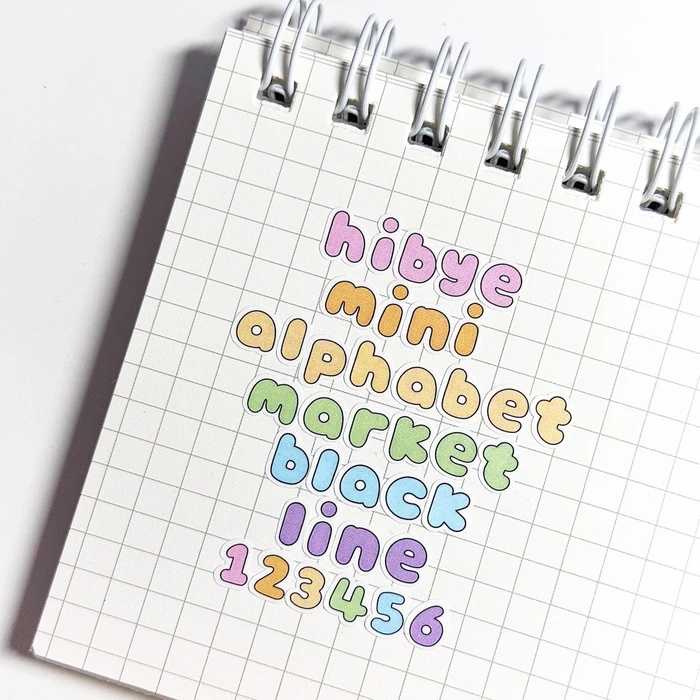 hibye
mini
alphabet
market
black
line
123456